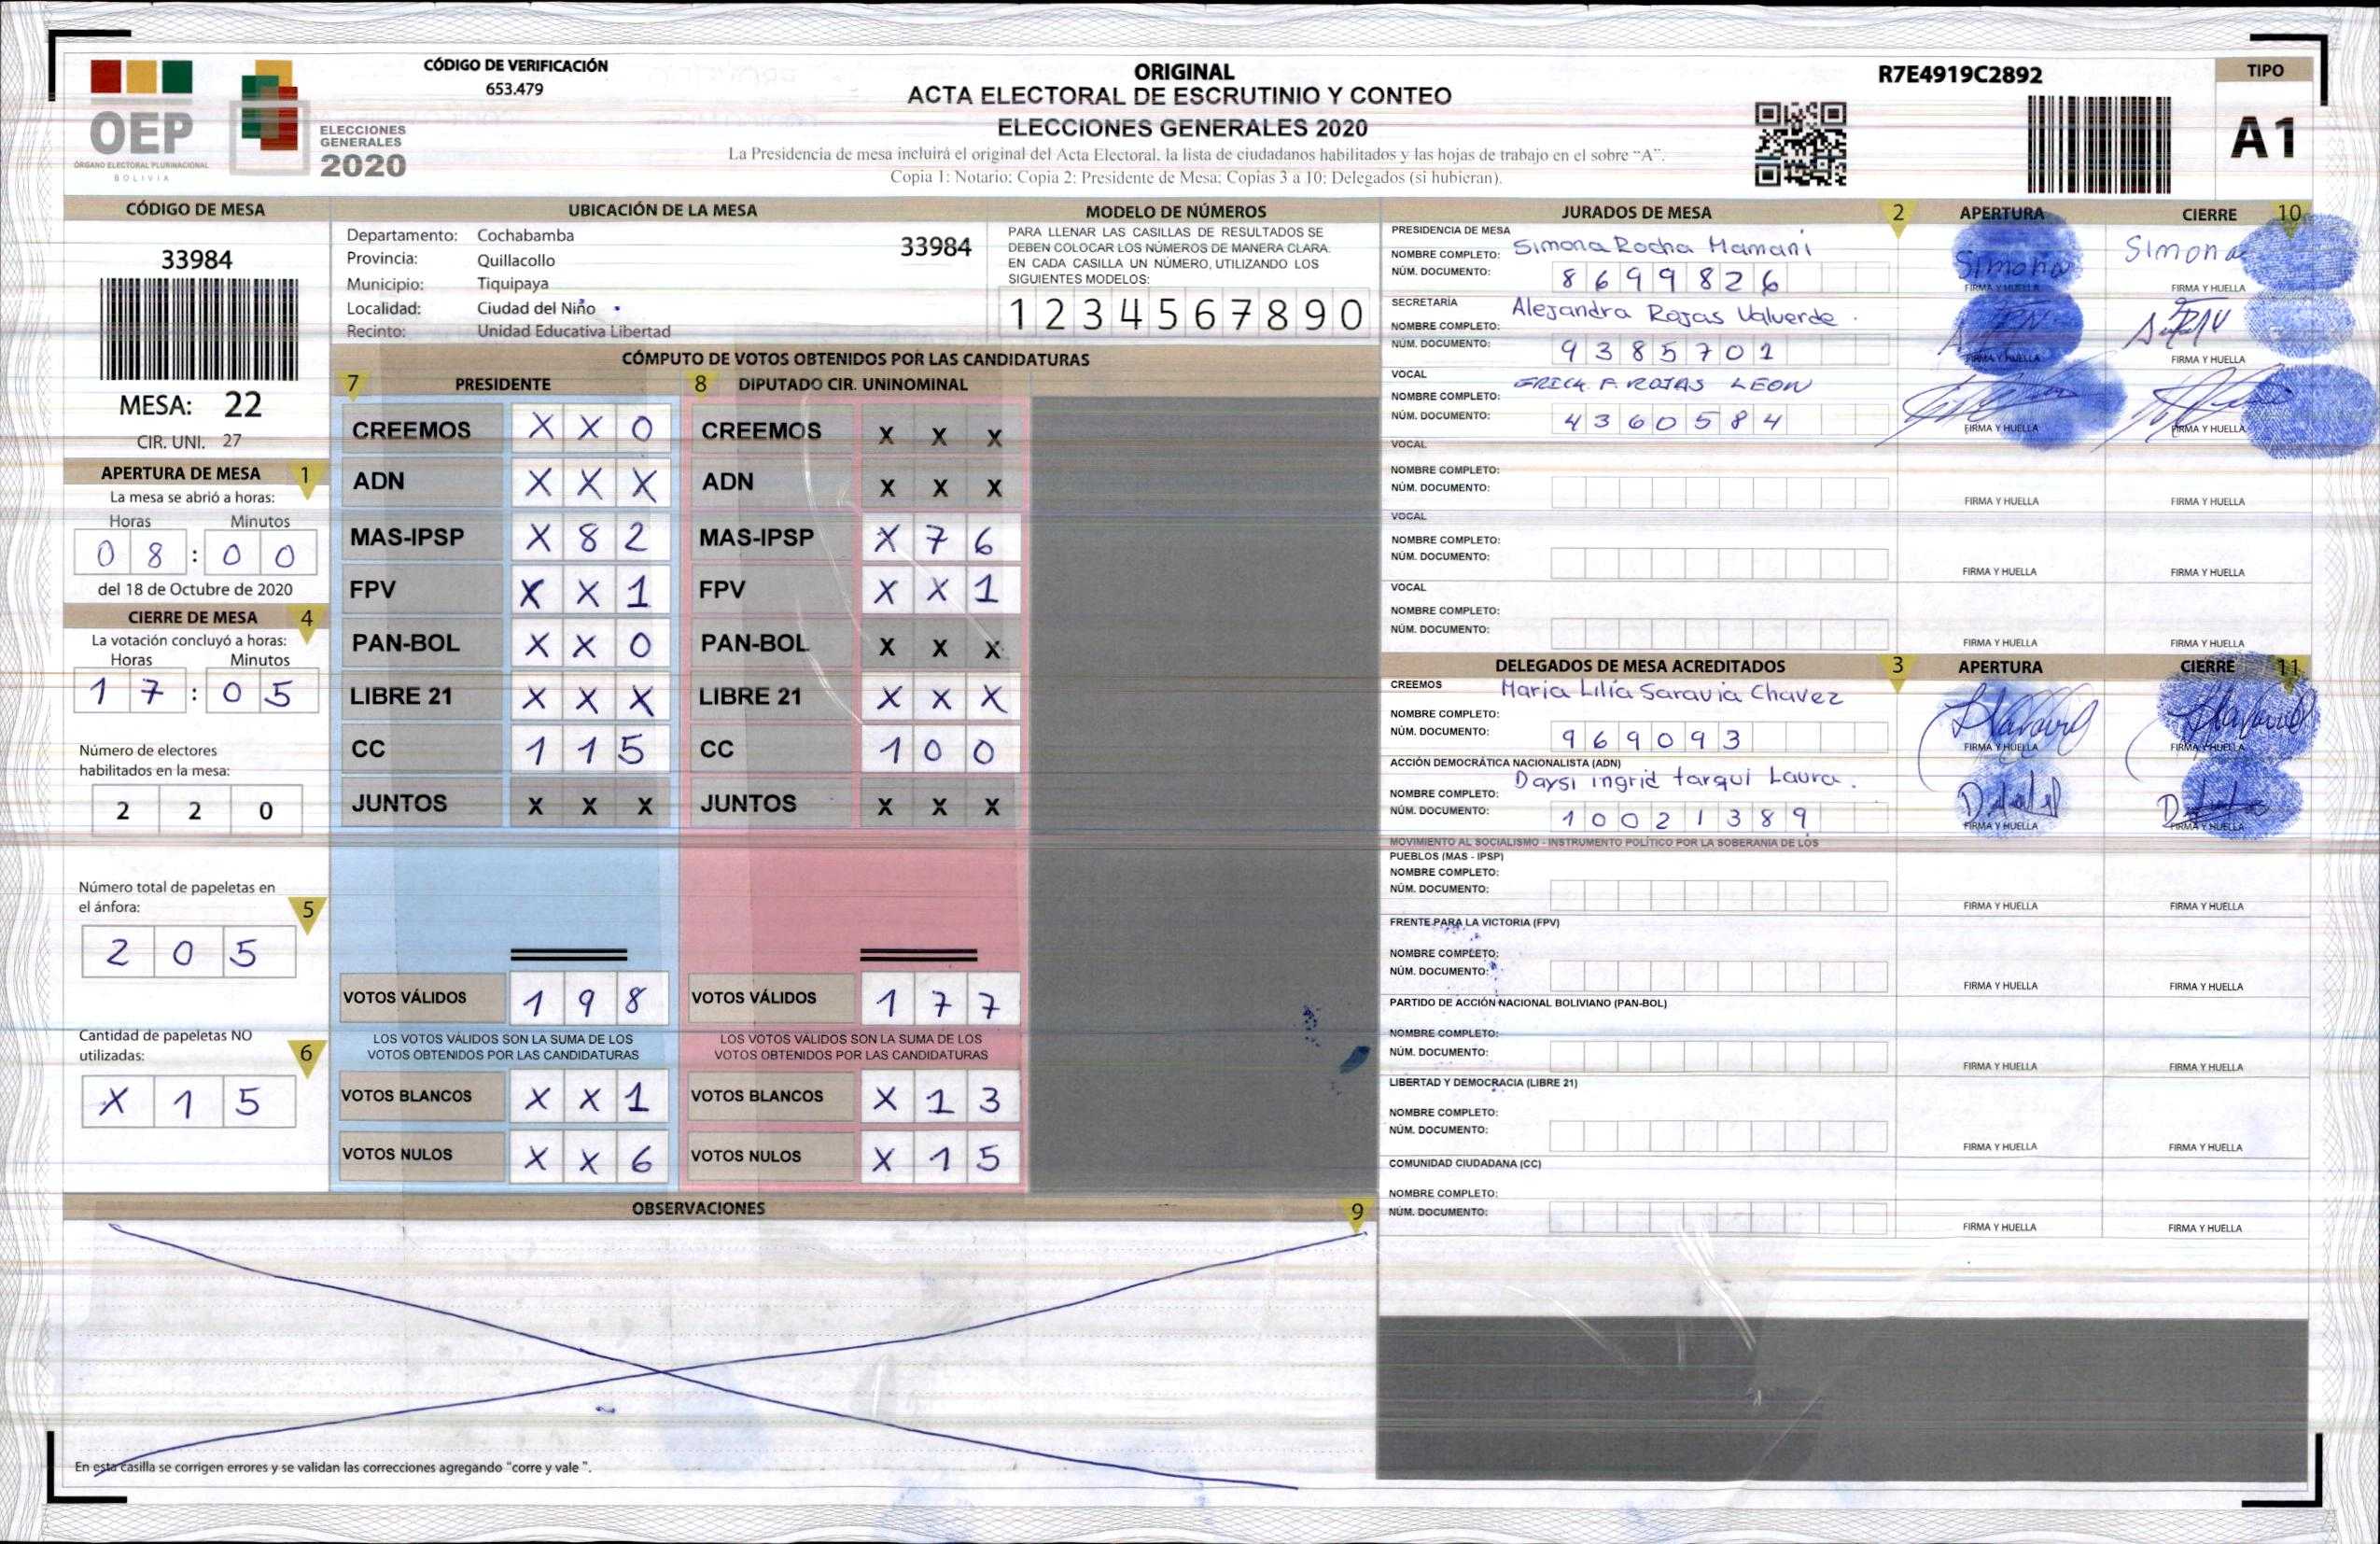 OEP
ÓRGANO ELECTORAL PLURINACIONAL
BOLIVIA
ELECCIONES
GENERALES
2020
CÓDIGO DE VERIFICACIÓN
653.479
ORIGINAL
ACTA ELECTORAL DE ESCRUTINIO Y CONTEO
ELECCIONES GENERALES 2020
La Presidencia de mesa incluirá el original del Acta Electoral, la lista de ciudadanos habilitados y las hojas de trabajo en el sobre "A".
Copia 1: Notario; Copia 2: Presidente de Mesa; Copias 3 a 10; Delegados (si hubieran).
R7E4919C2892
TIPO
A1
CÓDIGO DE MESA
33984
MESA: 22
CIR. UNI. 27
APERTURA DE MESA 1
La mesa se abrió a horas:
Horas Minutos
0 8 : 0 0
del 18 de Octubre de 2020
CIERRE DE MESA 4
La votación concluyó a horas:
Horas Minutos
1 7 : 0 5
Número de electores
habilitados en la mesa:
2 2 0
Número total de papeletas en
el ánfora: 5
2 0 5
Cantidad de papeletas NO
utilizadas: 6
X 1 5
UBICACIÓN DE LA MESA
Departamento: Cochabamba 33984
Provincia: Quillacollo
Municipio: Tiquipaya
Localidad: Ciudad del Niño
Recinto: Unidad Educativa Libertad
MODELO DE NÚMEROS
PARA LLENAR LAS CASILLAS DE RESULTADOS SE
DEBEN COLOCAR LOS NÚMEROS DE MANERA CLARA.
EN CADA CASILLA UN NÚMERO, UTILIZANDO LOS
SIGUIENTES MODELOS:
1 2 3 4 5 6 7 8 9 0
CÓMPUTO DE VOTOS OBTENIDOS POR LAS CANDIDATURAS
7 PRESIDENTE 8 DIPUTADO CIR. UNINOMINAL
CREEMOS X X 0 CREEMOS X X X
ADN X X X ADN X X X
MAS-IPSP X 8 2 MAS-IPSP X 7 6
FPV X X 1 FPV X X 1
PAN-BOL X X 0 PAN-BOL X X X
LIBRE 21 X X X LIBRE 21 X X X
CC 1 1 5 CC 1 0 0
JUNTOS X X X JUNTOS X X X
VOTOS VÁLIDOS 1 9 8 VOTOS VÁLIDOS 1 7 7
LOS VOTOS VÁLIDOS SON LA SUMA DE LOS LOS VOTOS VÁLIDOS SON LA SUMA DE LOS
VOTOS OBTENIDOS POR LAS CANDIDATURAS VOTOS OBTENIDOS POR LAS CANDIDATURAS
VOTOS BLANCOS X X 1 VOTOS BLANCOS X 1 3
VOTOS NULOS X X 6 VOTOS NULOS X 1 5
OBSERVACIONES 9
En esta casilla se corrigen errores y se validan las correcciones agregando "corre y vale ".
JURADOS DE MESA 2 APERTURA CIERRE 10
PRESIDENCIA DE MESA
NOMBRE COMPLETO: Simona Rocha Mamani Simona Simona
NÚM. DOCUMENTO: 8 6 9 9 8 2 6
FIRMA Y HUELLA FIRMA Y HUELLA
SECRETARÍA
NOMBRE COMPLETO: Alejandra Rojas Valverde.
NÚM. DOCUMENTO: 9 3 8 5 7 0 1
FIRMA Y HUELLA FIRMA Y HUELLA
VOCAL
NOMBRE COMPLETO: ERICK F. ROJAS LEON
NÚM. DOCUMENTO: 4 3 6 0 5 8 4
FIRMA Y HUELLA FIRMA Y HUELLA
VOCAL
NOMBRE COMPLETO:
NÚM. DOCUMENTO:
FIRMA Y HUELLA FIRMA Y HUELLA
VOCAL
NOMBRE COMPLETO:
NÚM. DOCUMENTO:
FIRMA Y HUELLA FIRMA Y HUELLA
VOCAL
NOMBRE COMPLETO:
NÚM. DOCUMENTO:
FIRMA Y HUELLA FIRMA Y HUELLA
DELEGADOS DE MESA ACREDITADOS 3 APERTURA CIERRE 11
CREEMOS
NOMBRE COMPLETO: Maria Lilia Saravia Chavez
NÚM. DOCUMENTO: 9 6 9 0 9 3
FIRMA Y HUELLA FIRMA Y HUELLA
ACCIÓN DEMOCRÁTICA NACIONALISTA (ADN)
NOMBRE COMPLETO: Daysi ingrid tarqui Laura.
NÚM. DOCUMENTO: 1 0 0 2 1 3 8 9
FIRMA Y HUELLA FIRMA Y HUELLA
MOVIMIENTO AL SOCIALISMO - INSTRUMENTO POLÍTICO POR LA SOBERANIA DE LOS
PUEBLOS (MAS - IPSP)
NOMBRE COMPLETO:
NÚM. DOCUMENTO:
FIRMA Y HUELLA FIRMA Y HUELLA
FRENTE PARA LA VICTORIA (FPV)
NOMBRE COMPLETO:
NÚM. DOCUMENTO:
FIRMA Y HUELLA FIRMA Y HUELLA
PARTIDO DE ACCIÓN NACIONAL BOLIVIANO (PAN-BOL)
NOMBRE COMPLETO:
NÚM. DOCUMENTO:
FIRMA Y HUELLA FIRMA Y HUELLA
LIBERTAD Y DEMOCRACIA (LIBRE 21)
NOMBRE COMPLETO:
NÚM. DOCUMENTO:
FIRMA Y HUELLA FIRMA Y HUELLA
COMUNIDAD CIUDADANA (CC)
NOMBRE COMPLETO:
NÚM. DOCUMENTO:
FIRMA Y HUELLA FIRMA Y HUELLA